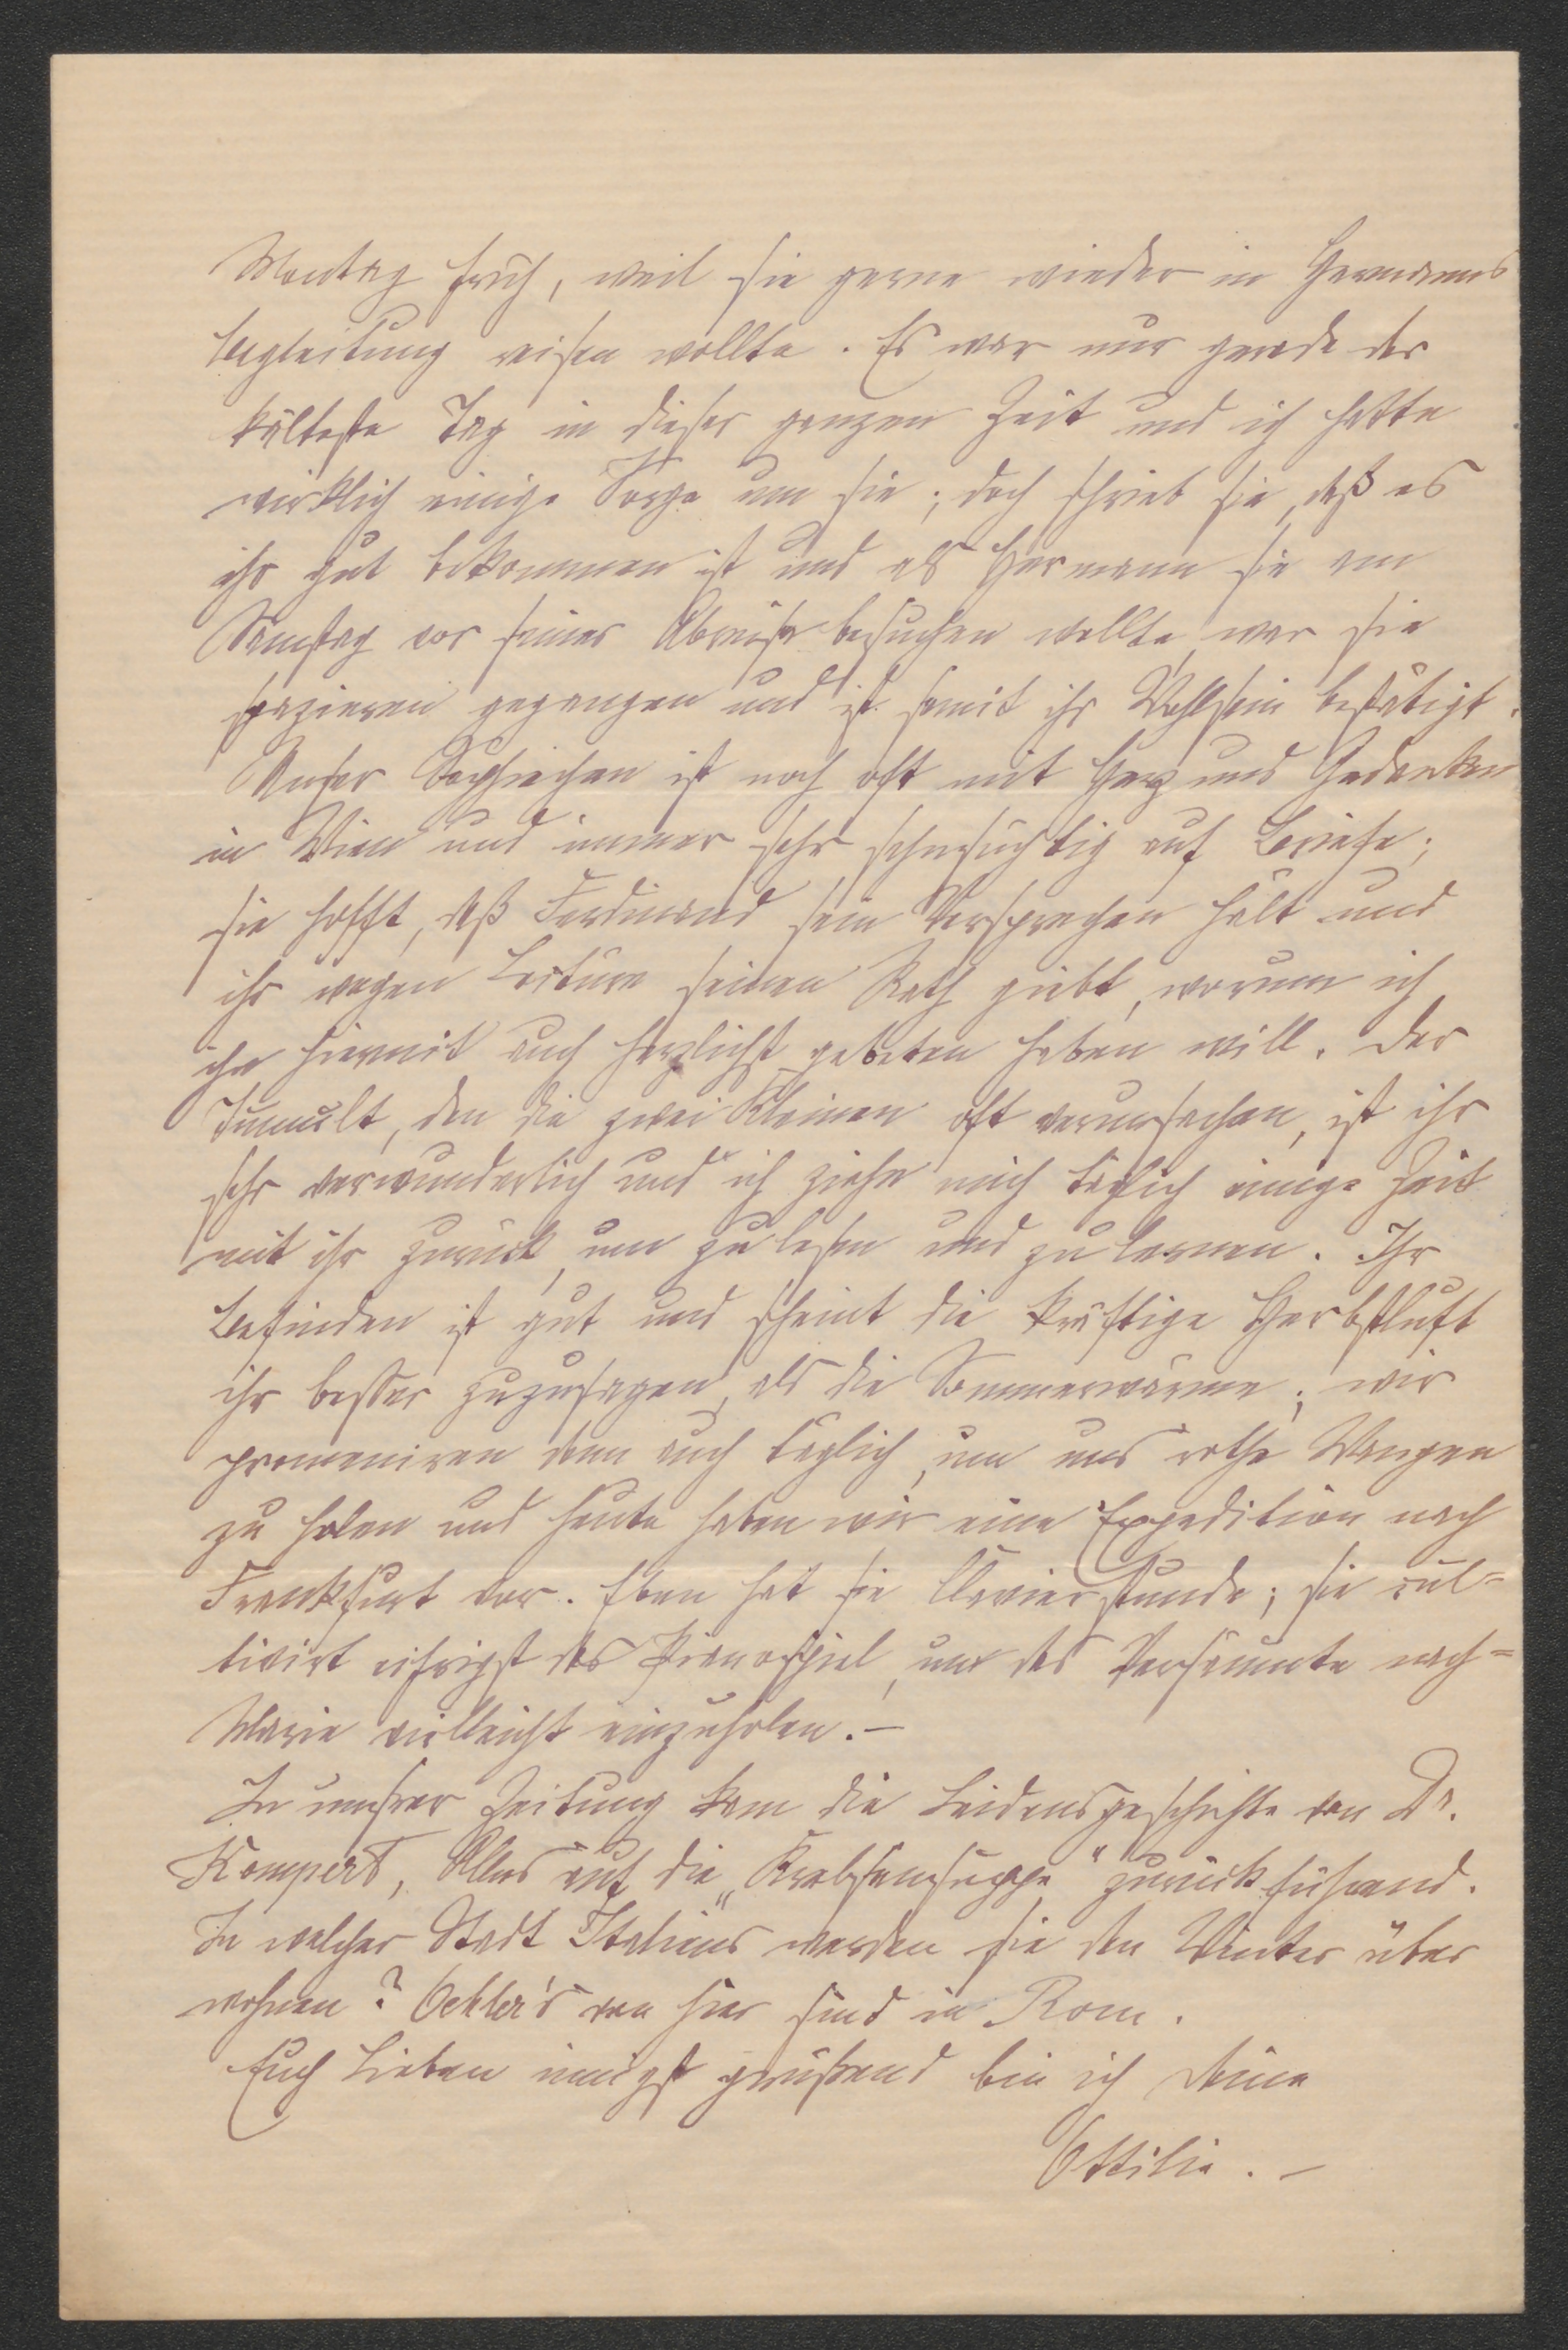 Montag früh, weil sie gerne wieder in Hermanns
Begleitung reisen wollte. Es war nur gerade der
kälteste Tag in dieser ganzen Zeit und ich hatte
wirklich einige Sorge um sie; doch schrieb sie, daß es
ihr gut bekommen ist und als Hermann sie am
Samstag vor seiner Abreise besuchen wollte, war sie
spazieren gegangen und ist somit ihr Wohlsein bestätigt.
Unser Sophiechen ist noch oft mit Herz und Gedanken
in Wien und immer sehr sehnsüchtig auf Briefe;
sie hofft, daß Ferdinand sein Versprechen hält und
ihr wegen Lecture seinen Rath giebt, worum ich
ihn hiermit auch herzlichst gebeten haben will. Der
Tumult, den die zwei Kleinen oft verursachen, ist ihr
sehr verwunderlich und ich ziehe mich täglich einige Zeit
mit ihr zurück, um zu lesen und zu lernen. Ihr
Befinden ist gut und scheint die kräftige Herbstluft
ihr besser zuzusagen, als die Sommerwärme; wir
promeniren denn auch täglich, um uns rothe Wangen
zu holen und heute haben wir eine Expedition nach
Frankfurt vor. Eben hat sie Clavierstunde; sie cul=
tivirt eifrigst das Pianospiel, um das Versäumte nach=
Marie vielleicht einzuholen.–
In unsrer Zeitung kam die Leidensgeschichte von Dr.
Kompert, Alles auf die „Krebsensuppe" zurückführend.
In welcher Stadt Italiens werden sie den Winter über
wohnen? Oehler's von hier sind in Rom.
Euch Lieben innigst grüßend bin ich Deine
Ottilie.–